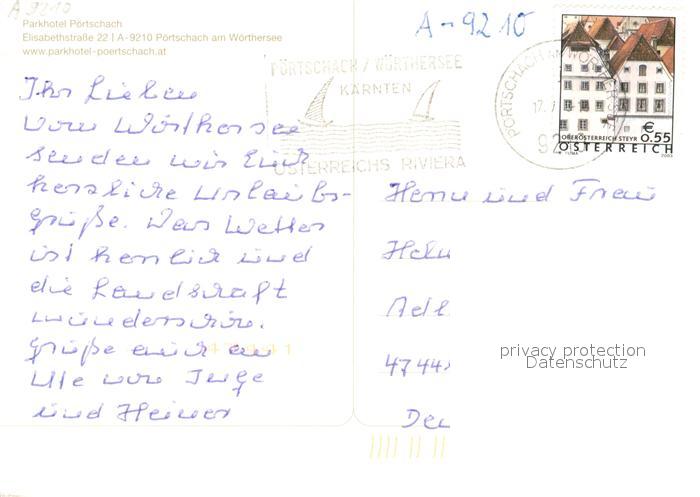 A 9210
Parkhotel Pörtschach
Elisabethstraße 22 | A-9210 Pörtschach am Wörthersee
www.parkhotel-poertschach.at
A-9210
PÖRTSCHACH / WÖRTHERSEE
KÄRNTEN
ÖSTERREICHS RIVIERA
PÖRTSCHACH AM WÖRTHERSEE
17.
92
€ 0.55
OBERÖSTERREICH STEYR
ÖSTERREICH
2003
Ihr Lieben
Vom Wörthersee
senden wir Euch
herzliche Urlaubs-
grüße. Das Wetter
ist herrlich und
die Landschaft
wunderschön.
Grüße auch an
Ute von Inge
und Heiner
Herrn und Frau
Helu
Adl
4744
Deu
privacy protection
Datenschutz